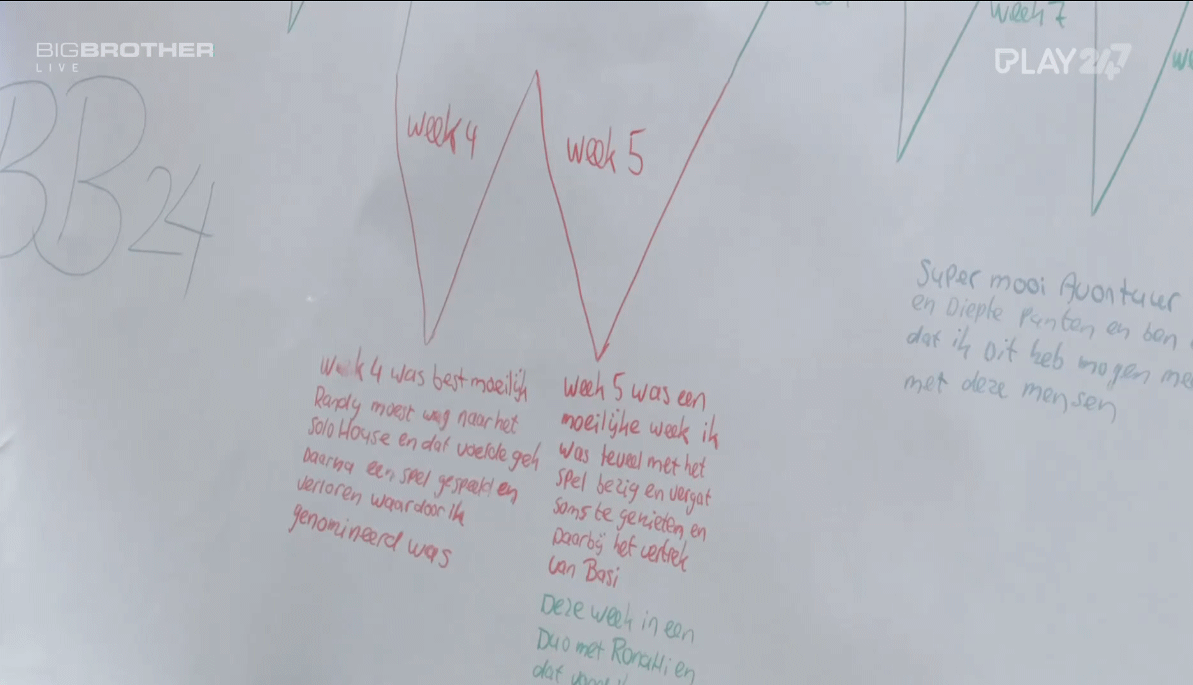 BIGBROTHER
LIVE
PLAY24/7
week 7
BB24
week 4
week 5
Super mooi Avontuur
en Diepte Punten en ben
dat ik Dit heb mogen mee
met deze mensen
week 4 was best moeilijk
Randy moest weg naar het
Solo House en dat voelde gek
Daarna een spel gespeeld en
verloren waardoor ik
genomineerd was
week 5 was een
moeilijke week ik
was teveel met het
spel bezig en vergat
soms te genieten en
Daarbij het vertrek
van Basi
Deze week in een
Duo met Ronatti en